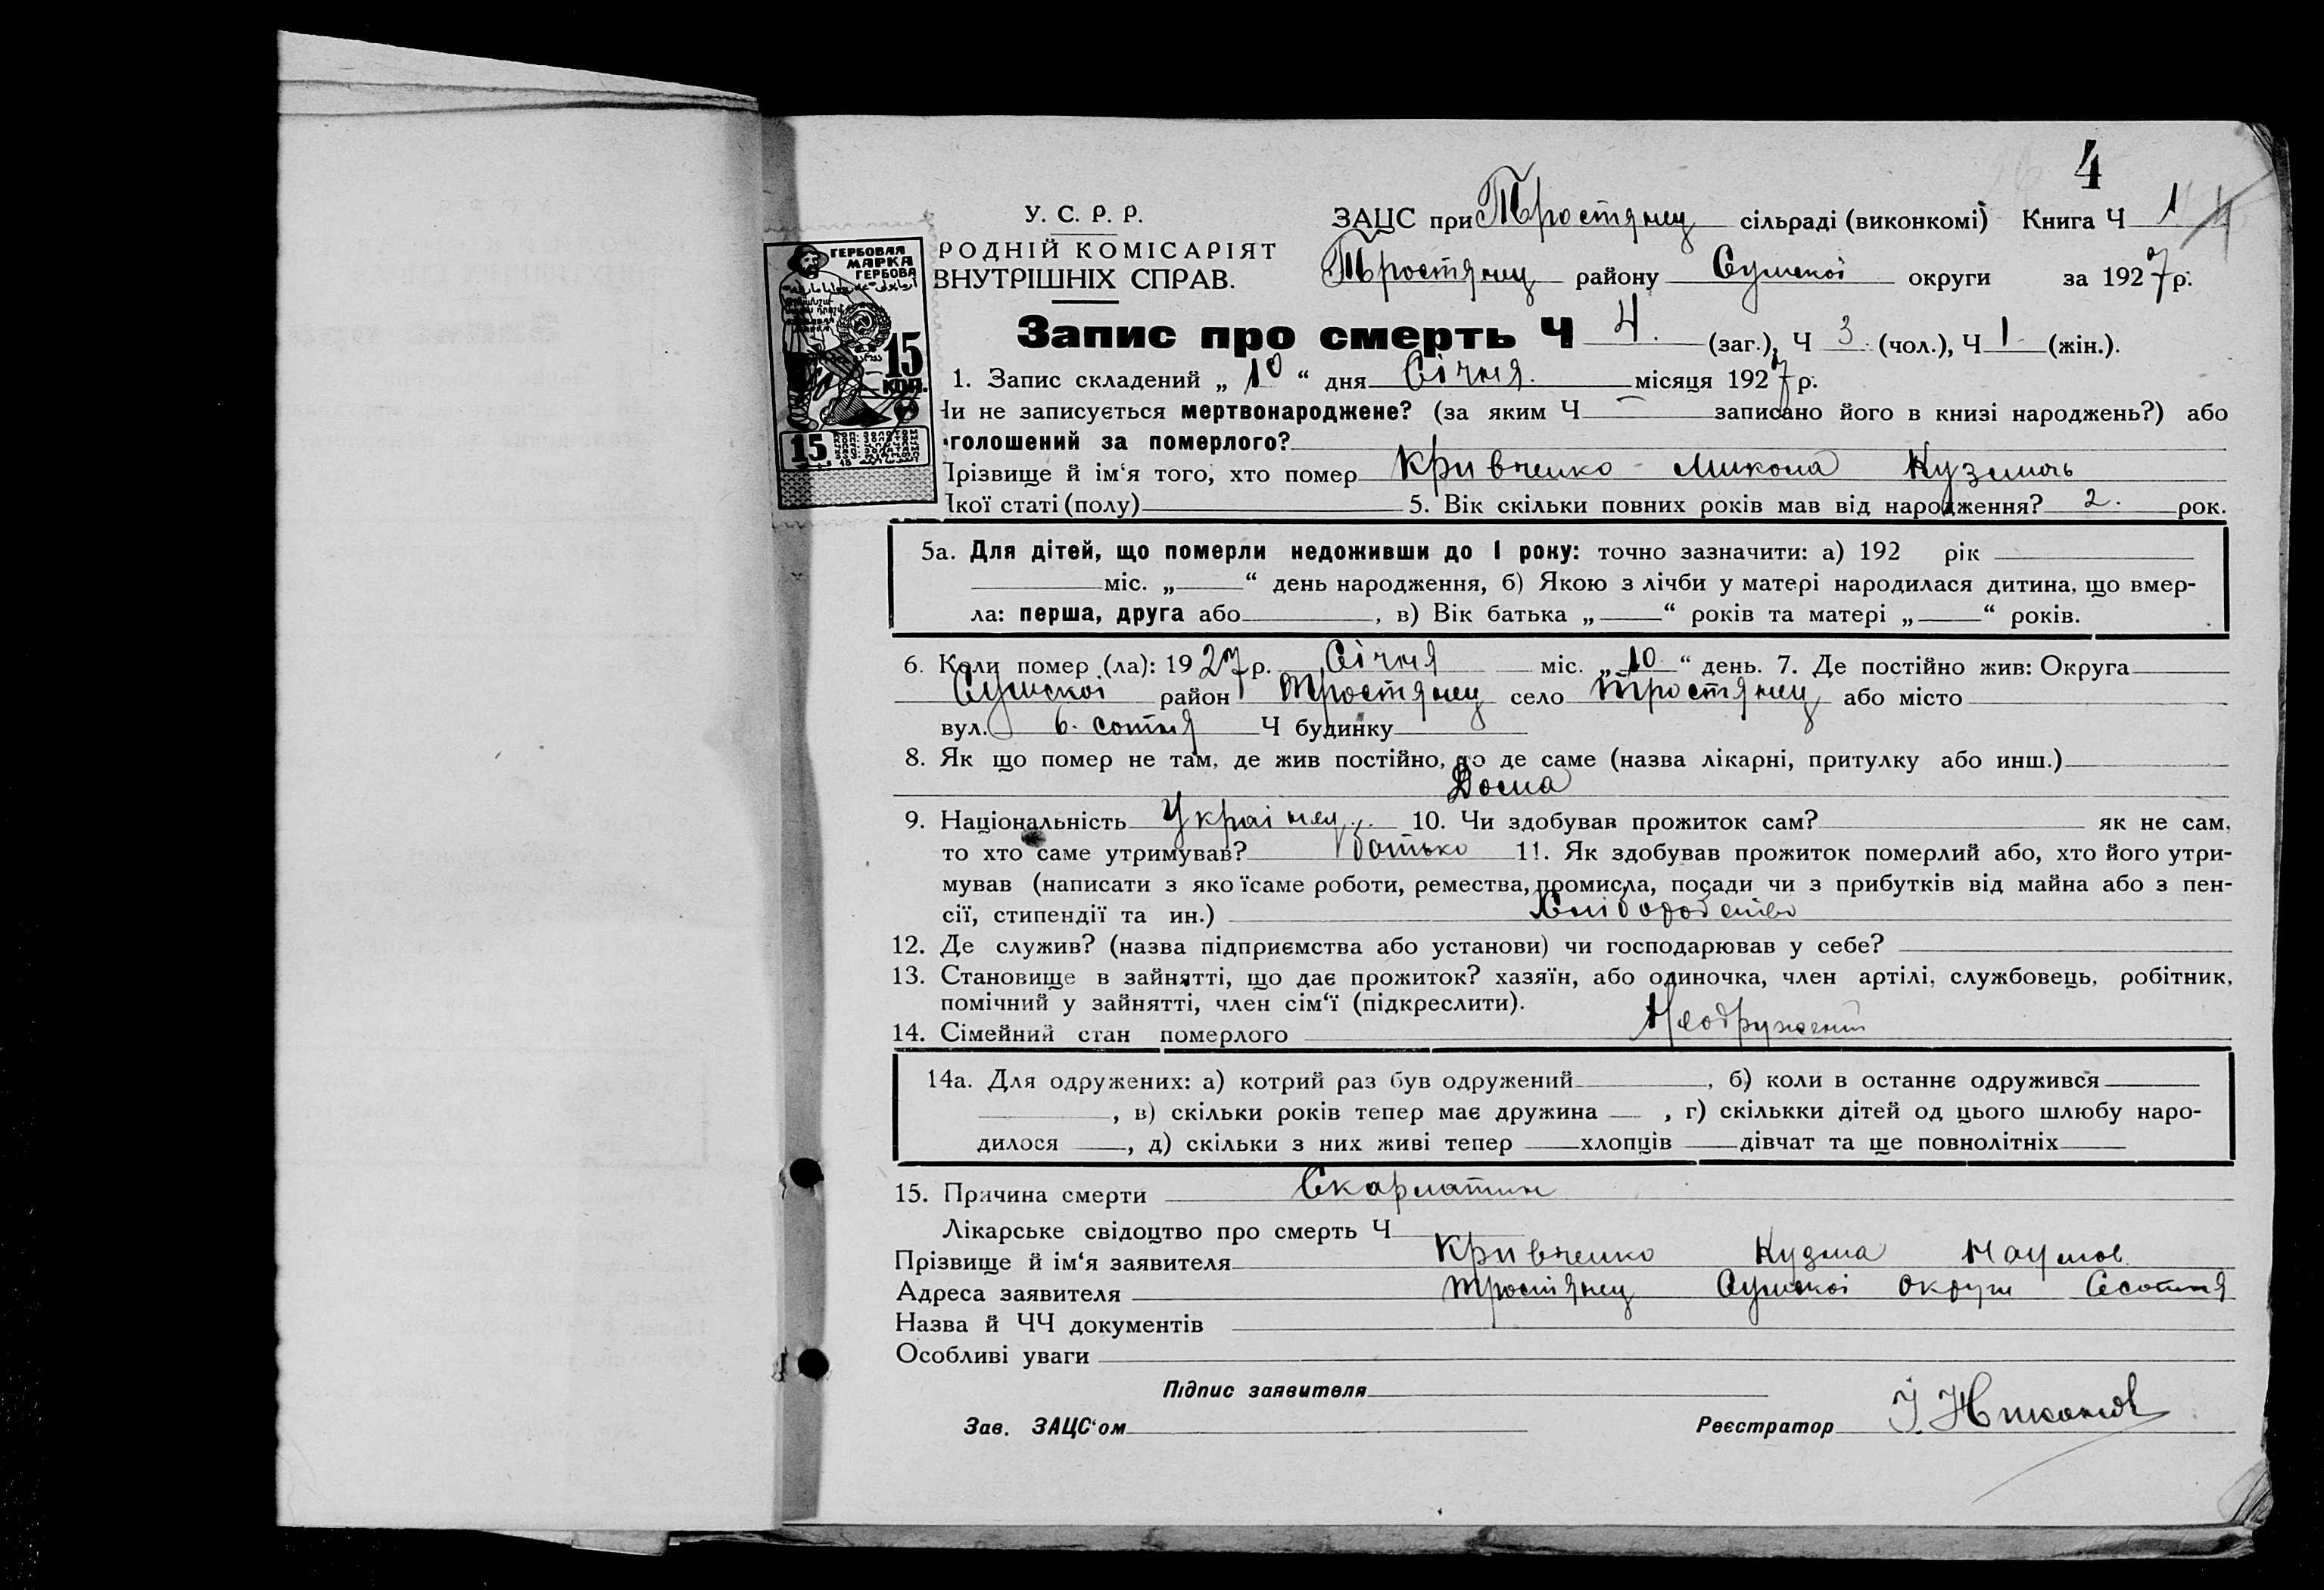 4
У. С. Р. Р.
РОДНІЙ КОМІСАРІЯТ
ВНУТРІШНІХ СПРАВ.
ЗАЦС при Тростянец сільраді (виконкомі) Книга Ч 1
Тростянец району Сумскої округи за 1927 р.
ГЕРБОВАЯ
МАРКА
ГЕРБОВА
15
КОП.
15
Запис про смерть Ч 4. (заг.), Ч 3. (чол.), Ч 1 (жін.).
1. Запис складений „ 10 “ дня Січня. місяця 1927 р.
Чи не записується мертвонароджене? (за яким Ч — записано його в книзі народжень?) або
голошений за померлого?
Прізвище й ім‘я того, хто помер Кривченко Микола Кузмичь
Якої статі (полу) 5. Вік скільки повних років мав від народження? 2. рок.
5а. Для дітей, що померли недоживши до 1 року: точно зазначити: а) 192 рік
міс. „ “ день народження, б) Якою з лічби у матері народилася дитина, що вмер-
ла: перша, друга або , в) Вік батька „ “ років та матері „ “ років.
6. Коли помер (ла): 1927 р. Січня міс. „ 10 “ день. 7. Де постійно жив: Округа
Сумскої район Тростянец село Тростянец або місто
вул. 6. сотня Ч будинку
8. Як що помер не там, де жив постійно, то де саме (назва лікарні, притулку або инш.)
Дома
9. Національність Украінец. 10. Чи здобував прожиток сам? як не сам,
то хто саме утримував? батько 11. Як здобував прожиток померлий або, хто його утри-
мував (написати з якоїсаме роботи, ремества, промисла, посади чи з прибутків від майна або з пен-
сії, стипендії та ин.) Хліборобство
12. Де служив? (назва підприємства або установи) чи господарював у себе?
13. Становище в зайнятті, що дає прожиток? хазяїн, або одиночка, член артілі, службовець, робітник,
помічний у зайнятті, член сім‘ї (підкреслити).
14. Сімейний стан померлого Неодружений
14а. Для одружених: а) котрий раз був одружений , б) коли в останнє одружився
, в) скільки років тепер має дружина , г) скількки дітей од цього шлюбу наро-
дилося , д) скільки з них живі тепер хлопців дівчат та ще повнолітніх
15. Причина смерти Скарлатин
Лікарське свідоцтво про смерть Ч
Прізвище й ім‘я заявителя Кривченко Кузма Наумов
Адреса заявителя Тростянец Сумскої округи 6 сотня
Назва й ЧЧ документів
Особливі уваги
Підпис заявителя
Зав. ЗАЦС‘ом Реєстратор